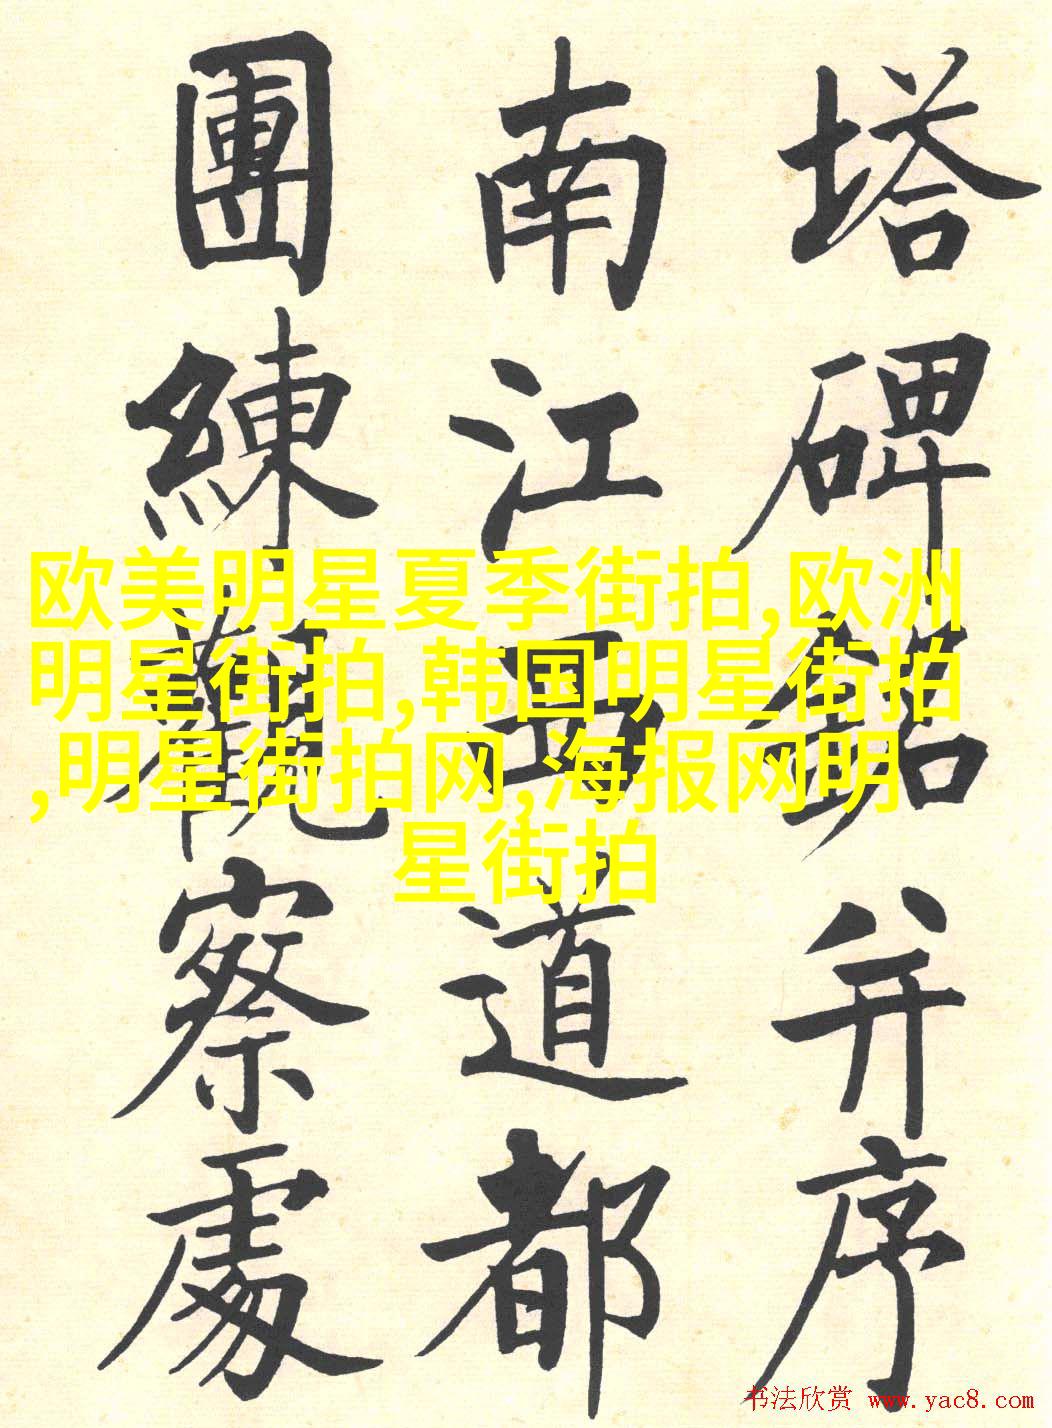 塔碑銘并序
南江西道都
團練觀察處
欧美明星夏季街拍,欧洲
明星街拍,韩国明星街拍
,明星街拍网,海报网明
星街拍
书法欣赏 www.yac8.com